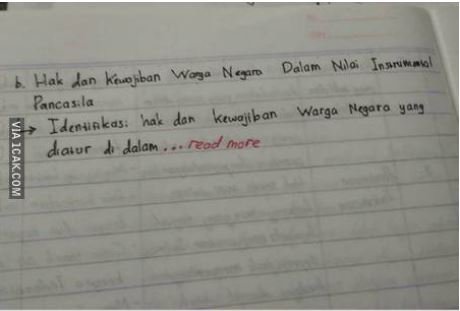 b. Hak dan Kewajiban Warga Negara Dalam Nilai Instrumental
Pancasila
→ Identifikasi hak dan kewajiban Warga Negara yang
diatur di dalam ... read more
VIA 1CAK.COM